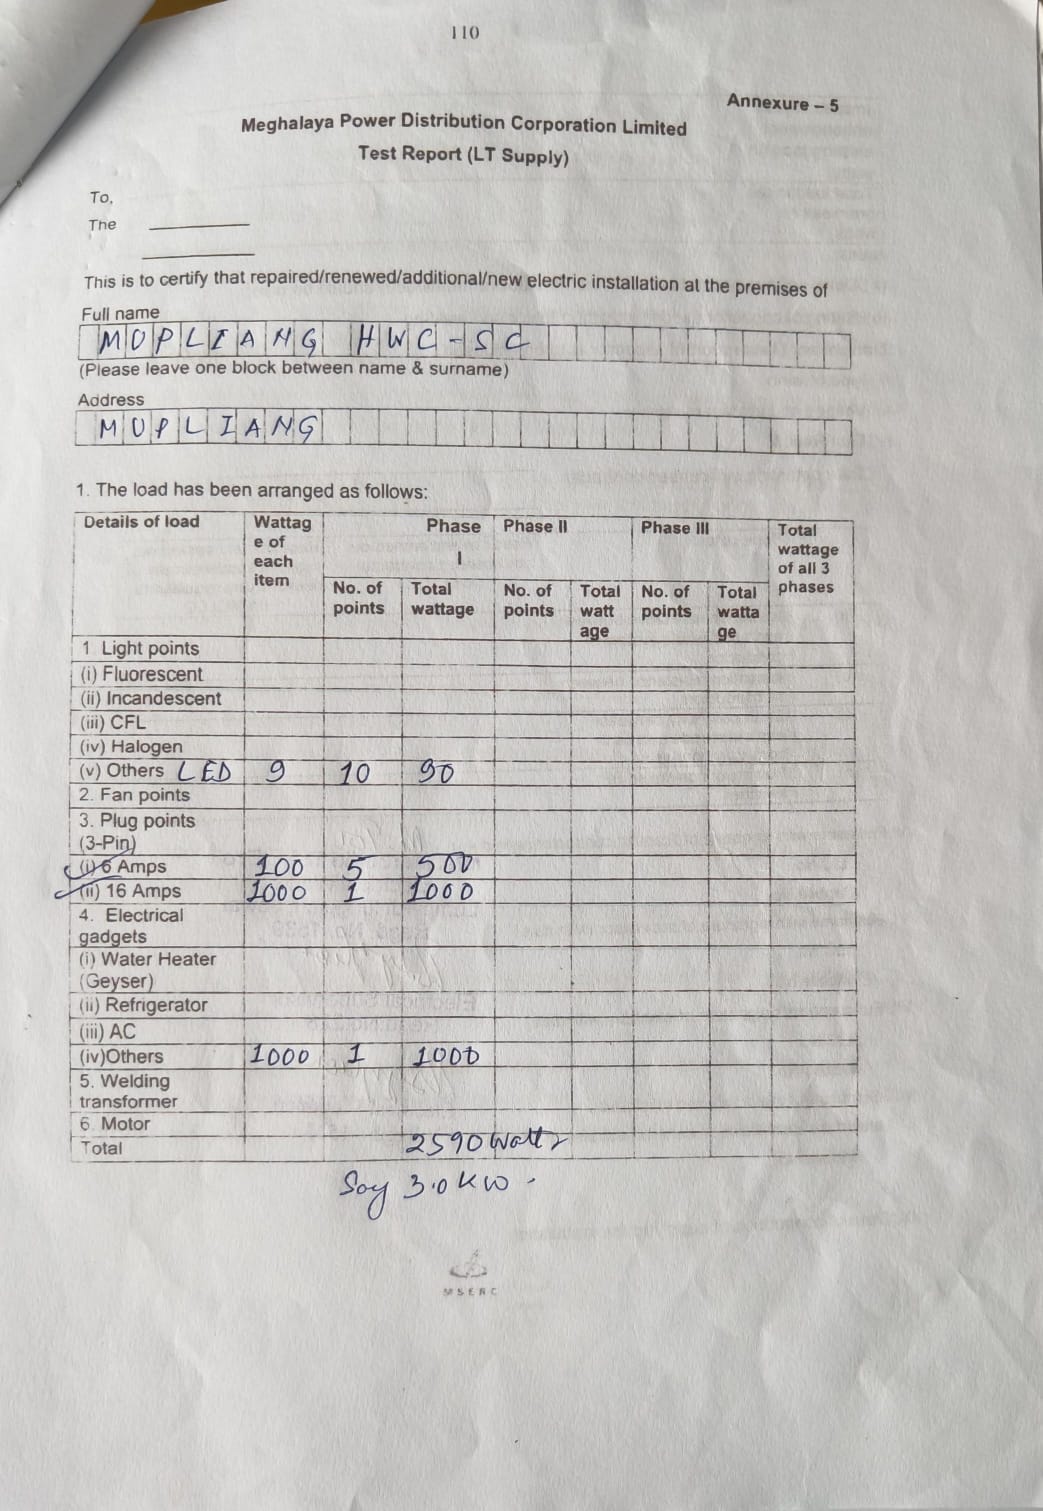 110
Annexure – 5
Meghalaya Power Distribution Corporation Limited
Test Report (LT Supply)
To,
The
This is to certify that repaired/renewed/additional/new electric installation at the premises of
Full name
MOPLIANG HWC-SC
(Please leave one block between name & surname)
Address
MUPLIANG
1. The load has been arranged as follows:
Details of load Wattag e of each item Phase I Phase II Phase III Total wattage of all 3 phases
No. of points Total wattage No. of points Total watt age No. of points Total watta ge
1 Light points
(i) Fluorescent
(ii) Incandescent
(iii) CFL
(iv) Halogen
(v) Others LED 9 10 90
2. Fan points
3. Plug points
(3-Pin)
(i) 6 Amps 100 5 500
(ii) 16 Amps 1000 1 1000
4. Electrical
gadgets
(i) Water Heater
(Geyser)
(ii) Refrigerator
(iii) AC
(iv)Others 1000 1 1000
5. Welding
transformer
6 Motor
Total 2590 Watts
Say 3.0 KW.
MSERC